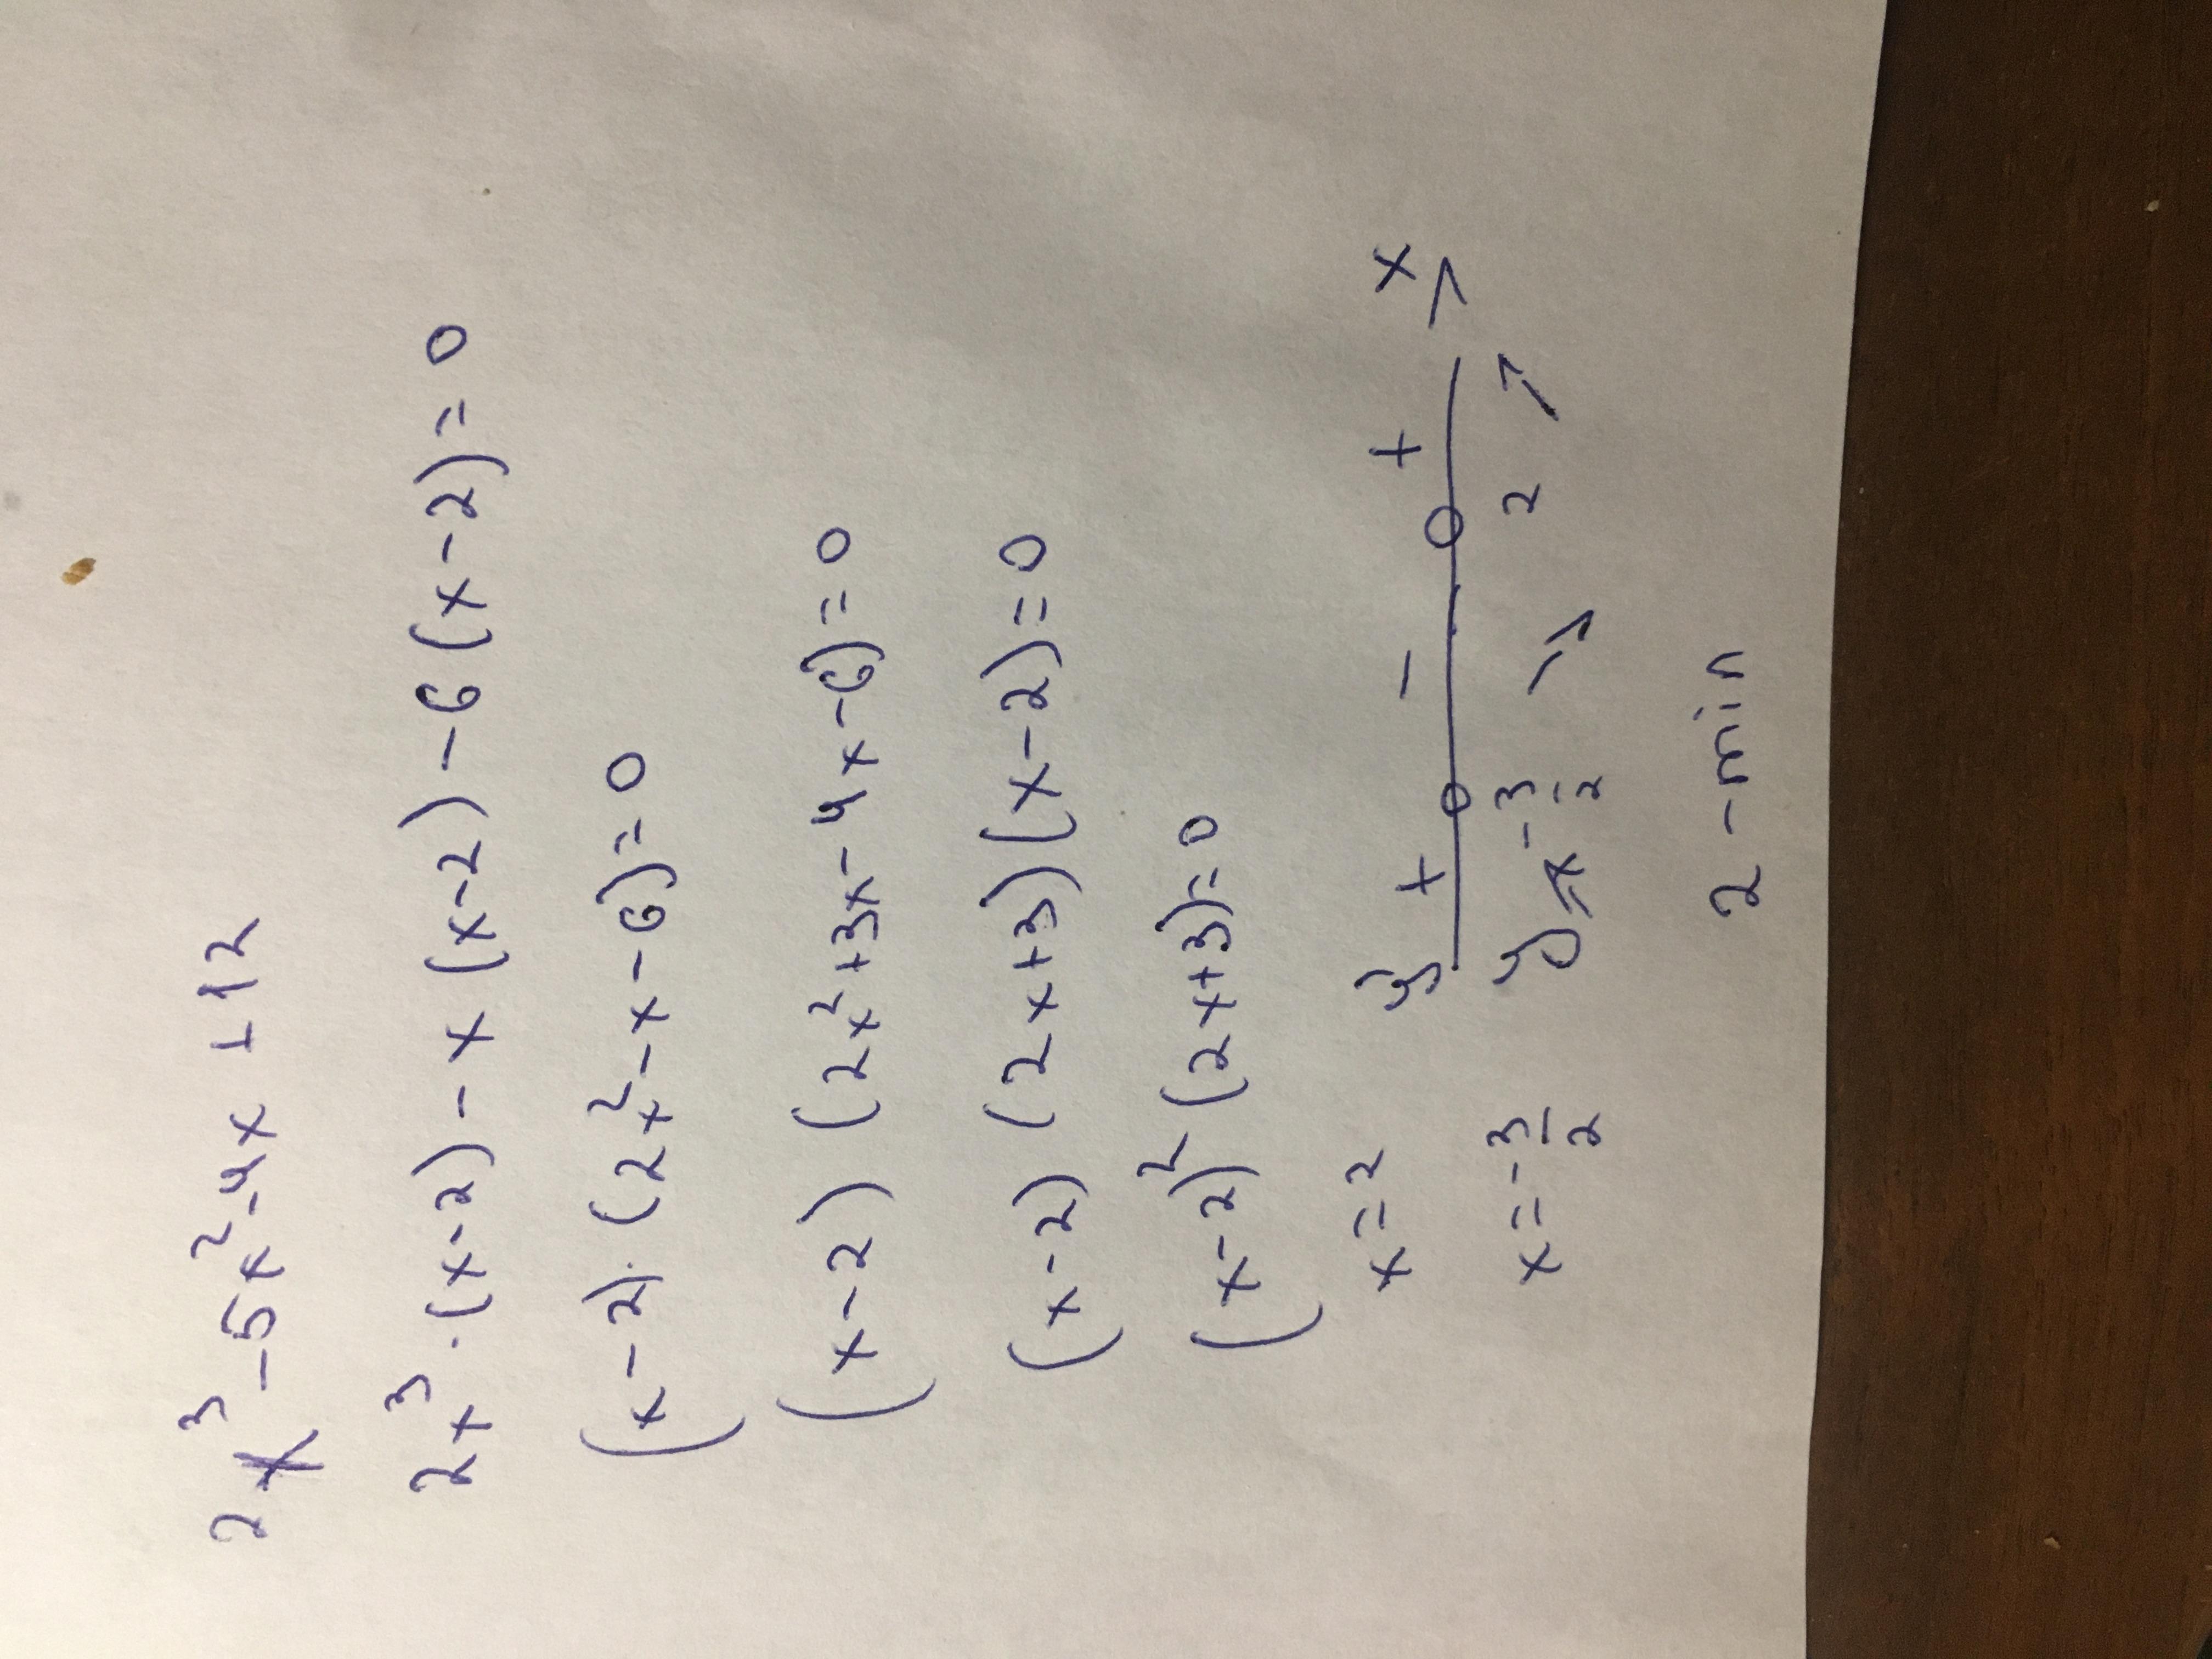 2x³-5x²-4x+12
2x³·(x-2)-x(x-2)-6(x-2)=0
(x-2)·(2x²-x-6)=0
(x-2)(2x²+3x-4x-6)=0
(x-2)(2x+3)(x-2)=0
(x-2)²(2x+3)=0
x=2 y' + - + x
x=-3/2 y ↗ -3/2 ↘ 2 ↗
2-min